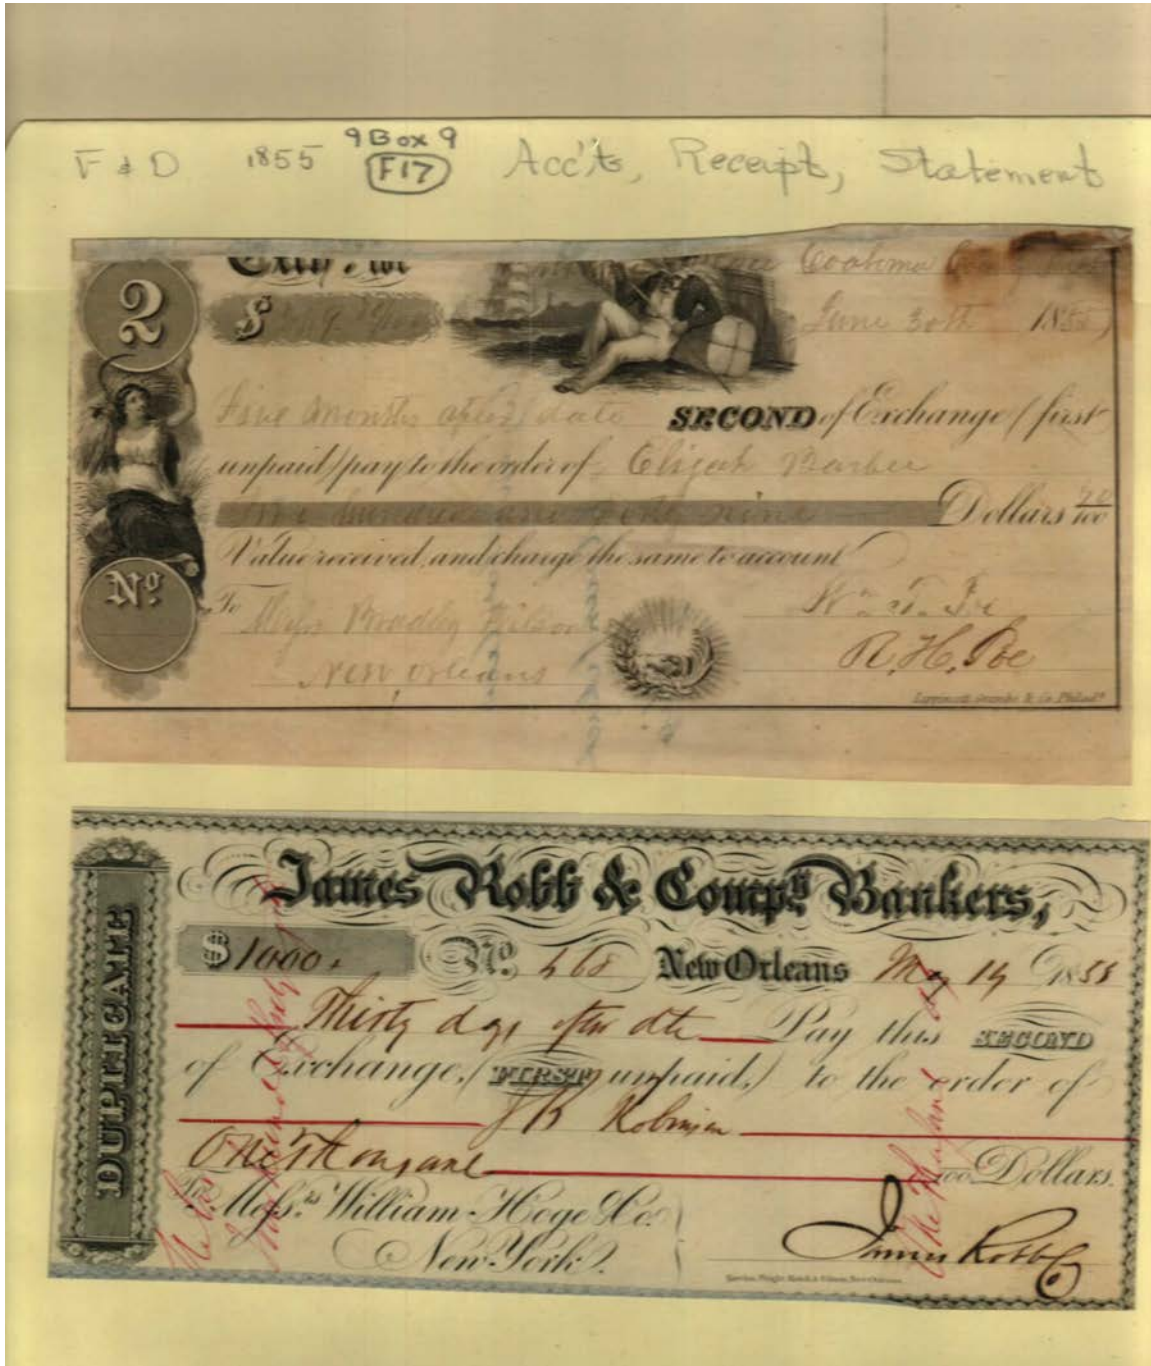 F & D 1855 9 Box 9 Acc'ts, Receipt, Statement
F17
2
$
June 30th 1855
Five months after date SECOND of Exchange (first
unpaid) pay to the order of Elijah Barbee
hundred and nine Dollars 20/100
Value received, and charge the same to account
No
To Bradley Wilson
New Orleans
R. H. Poe
Lippincott Grambo & Co. Philada
DUPLICATE
James Robb & Compy. Bankers,
$1000. No. 468 New Orleans May 14 1855
Thirty days after dte Pay this SECOND
of Exchange, (FIRST unpaid,) to the order of
J B Robinson
One Thousand 100 Dollars.
To Messrs. William Hoge & Co.
New York.
James Robb & Co